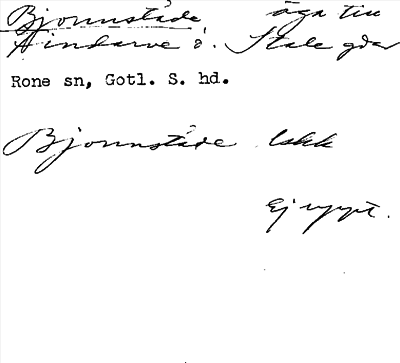 Bjonnståde äga till
Hindarve o. Stale gdar
Rone sn, Gotl. S. hd.
Bjonnståde
Ej uppt.